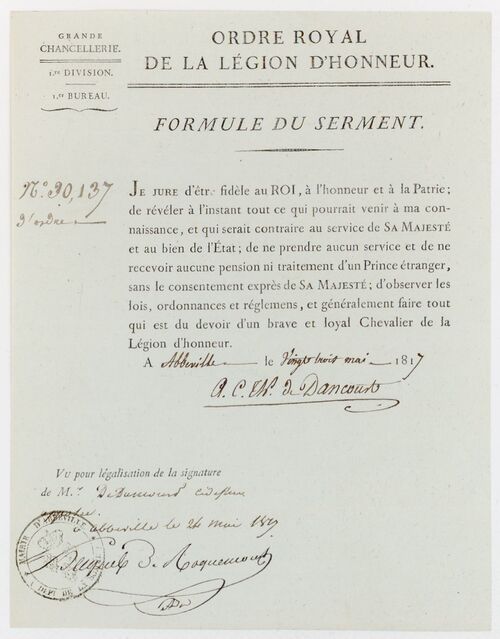 GRANDE
CHANCELLERIE.
1.re DIVISION.
1.er BUREAU.
ORDRE ROYAL
DE LA LÉGION D'HONNEUR.
FORMULE DU SERMENT.
N.o 30,137
d'ordre
JE JURE d'être fidèle au ROI, à l'honneur et à la Patrie;
de révéler à l'instant tout ce qui pourrait venir à ma con-
naissance, et qui serait contraire au service de SA MAJESTÉ
et au bien de l'État; de ne prendre aucun service et de ne
recevoir aucune pension ni traitement d'un Prince étranger,
sans le consentement exprès de SA MAJESTÉ; d'observer les
lois, ordonnances et réglemens, et généralement faire tout
qui est du devoir d'un brave et loyal Chevalier de la
Légion d'honneur.
A Abbeville le Vingt trois mai 1817
A. C. Th. de Dancourt
VU pour légalisation de la signature
de M.r De Dancourt
abbeville le 24 mai 1817
MAIRIE D'ABBEVILLE DEPT DE LA
De Roquemont